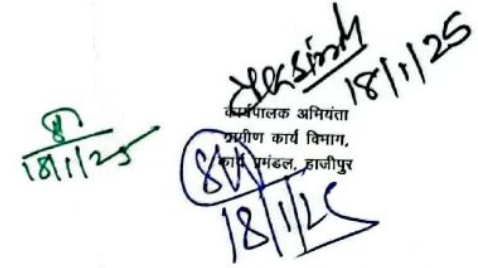 18/1/25
कार्यपालक अभियंता
ग्रामीण कार्य विभाग,
कार्य प्रमंडल, हाजीपुर
18/1/25
18/1/25